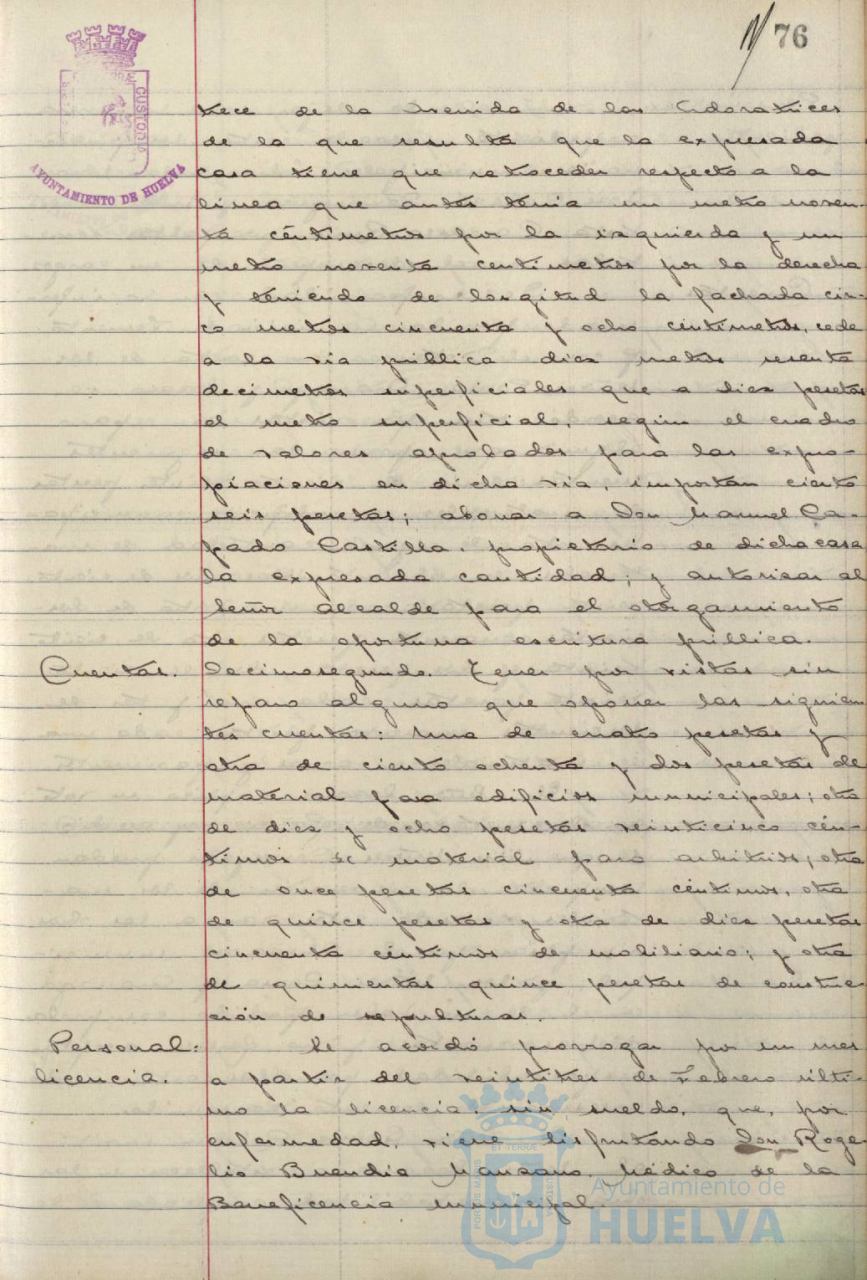 76
CUSTODIA
AYUNTAMIENTO DE HUELVA
tece de la Avenida de las Adoratrices
de la que resulta que la expresada
casa tiene que retroceder respecto a la
línea que antes tenia un metro noven-
ta céntimetros por la izquierda y un
metro noventa centimetros por la derecha
y teniendo de longitud la fachada cin-
co metros cincuenta y ocho céntimetros, cede
a la via pública diez metros sesenta
decimetros superficiales que a diez pesetas
el metro superficial, según el cuadro
de valores aprobados para las expro-
piaciones en dicha via, importan ciento
seis pesetas; abonar a Don Manuel Ca-
pado Castilla, propietario de dicha casa
la expresada cantidad; y autorizar al
Señor Alcalde para el otorgamiento
de la oportuna escritura pública.
Cuentas. Decimosegundo. Tener por vistas sin
reparo alguno que oponer las siguien
tes cuentas: Una de cuatro pesetas y
otra de ciento ochenta y dos pesetas de
material para edificios municipales; otra
de diez y ocho pesetas veinticinco cén-
timos de material para arbitrios; otra
de once pesetas cincuenta céntimos, otra
de quince pesetas y otra de diez pesetas
cincuenta céntimos de mobiliario; y otra
de quinientas quince pesetas de construc-
ción de sepulturas.
Personal: Se acordó prorrogar por un mes
licencia. a partir del veintitres de Febrero últi-
mo la licencia, sin sueldo, que, por
enfermedad, viene disfrutando Don Roge-
lio Buendía Manzano, Médico de la
Beneficencia municipal.
Ayuntamiento de
HUELVA